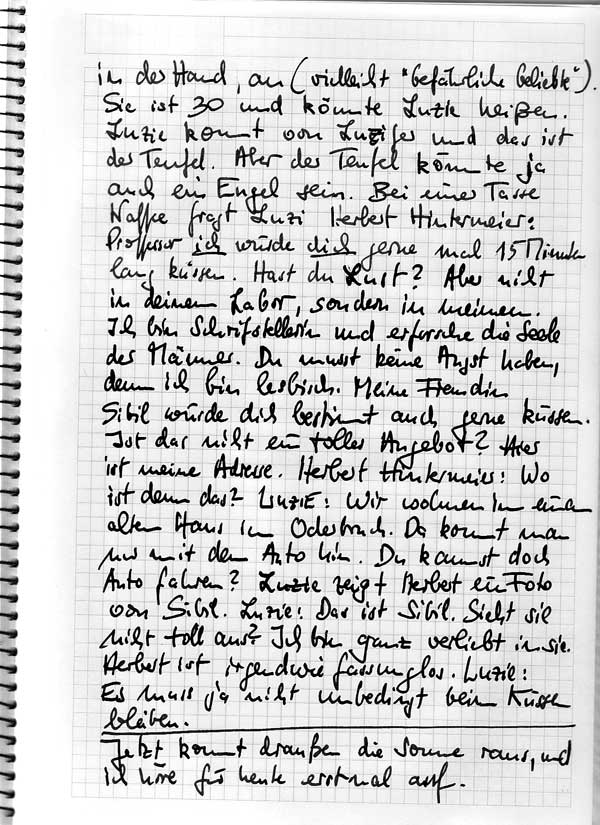 in der Hand, an (vielleicht "Gefährliche Geliebte").
Sie ist 30 und könnte Luzie heißen.
Luzie kommt von Luzifer und das ist
der Teufel. Aber der Teufel könnte ja
auch ein Engel sein. Bei einer Tasse
Kaffee fragt Luzi Herbert Hintermeier:
Professor ich würde dich gerne mal 15 Minuten
lang küssen. Hast du Lust? Aber nicht
in deinem Labor, sondern in meinem.
Ich bin Schriftstellerin und erforsche die Seele
des Mannes. Du musst keine Angst haben,
denn ich bin lesbisch. Meine Freundin
Sibil würde dich bestimmt auch gerne küssen.
Ist das nicht ein tolles Angebot? Hier
ist meine Adresse. Herbert Hintermeier: Wo
ist denn das? LUZIE: Wir wohnen in einem
alten Haus im Oderbruch. Da kommt man
nur mit dem Auto hin. Du kannst doch
Auto fahren? Luzie zeigt Herbert ein Foto
von Sibil. Luzie: Das ist Sibil. Sieht sie
nicht toll aus? Ich bin ganz verliebt in sie.
Herbert ist irgendwie fassunglos. Luzie:
Es muss ja nicht unbedingt beim Küssen
bleiben.
Jetzt kommt draußen die Sonne raus, und
ich höre für heute erstmal auf.